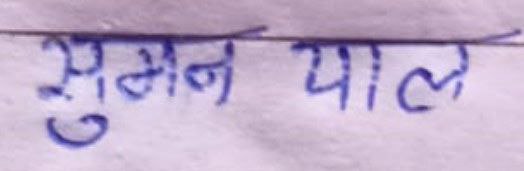 सुमन पाल